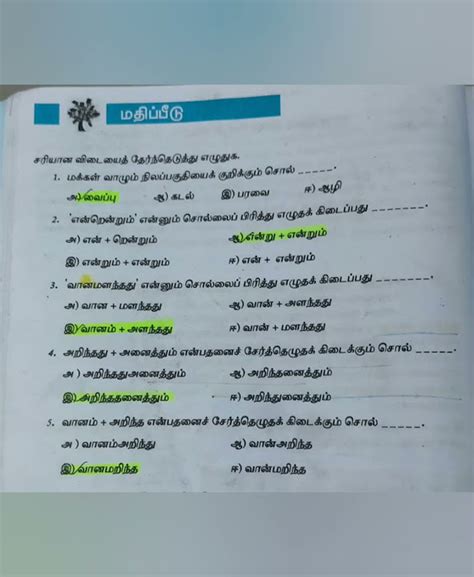 மதிப்பீடு
சரியான விடையைத் தேர்ந்தெடுத்து எழுதுக.
1. மக்கள் வாழும் நிலப்பகுதியைக் குறிக்கும் சொல் _____.
அ) வைப்பு ஆ) கடல் இ) பரவை ஈ) ஆழி
2. 'என்றென்றும்' என்னும் சொல்லைப் பிரித்து எழுதக் கிடைப்பது _______.
அ) என் + றென்றும் ஆ) என்று + என்றும்
இ) என்றும் + என்றும் ஈ) என் + என்றும்
3. 'வானமளந்தது' என்னும் சொல்லைப் பிரித்து எழுதக் கிடைப்பது _______.
அ) வான + மளந்தது ஆ) வான் + அளந்தது
இ) வானம் + அளந்தது ஈ) வான் + மளந்தது
4. அறிந்தது + அனைத்தும் என்பதனைச் சேர்த்தெழுதக் கிடைக்கும் சொல் _____.
அ ) அறிந்ததுஅனைத்தும் ஆ) அறிந்தனைத்தும்
இ) அறிந்ததனைத்தும் ஈ) அறிந்துனைத்தும்
5. வானம் + அறிந்த என்பதனைச் சேர்த்தெழுதக் கிடைக்கும் சொல் _____.
அ ) வானம்அறிந்து ஆ) வான்அறிந்த
இ) வானமறிந்த ஈ) வான்மறிந்த